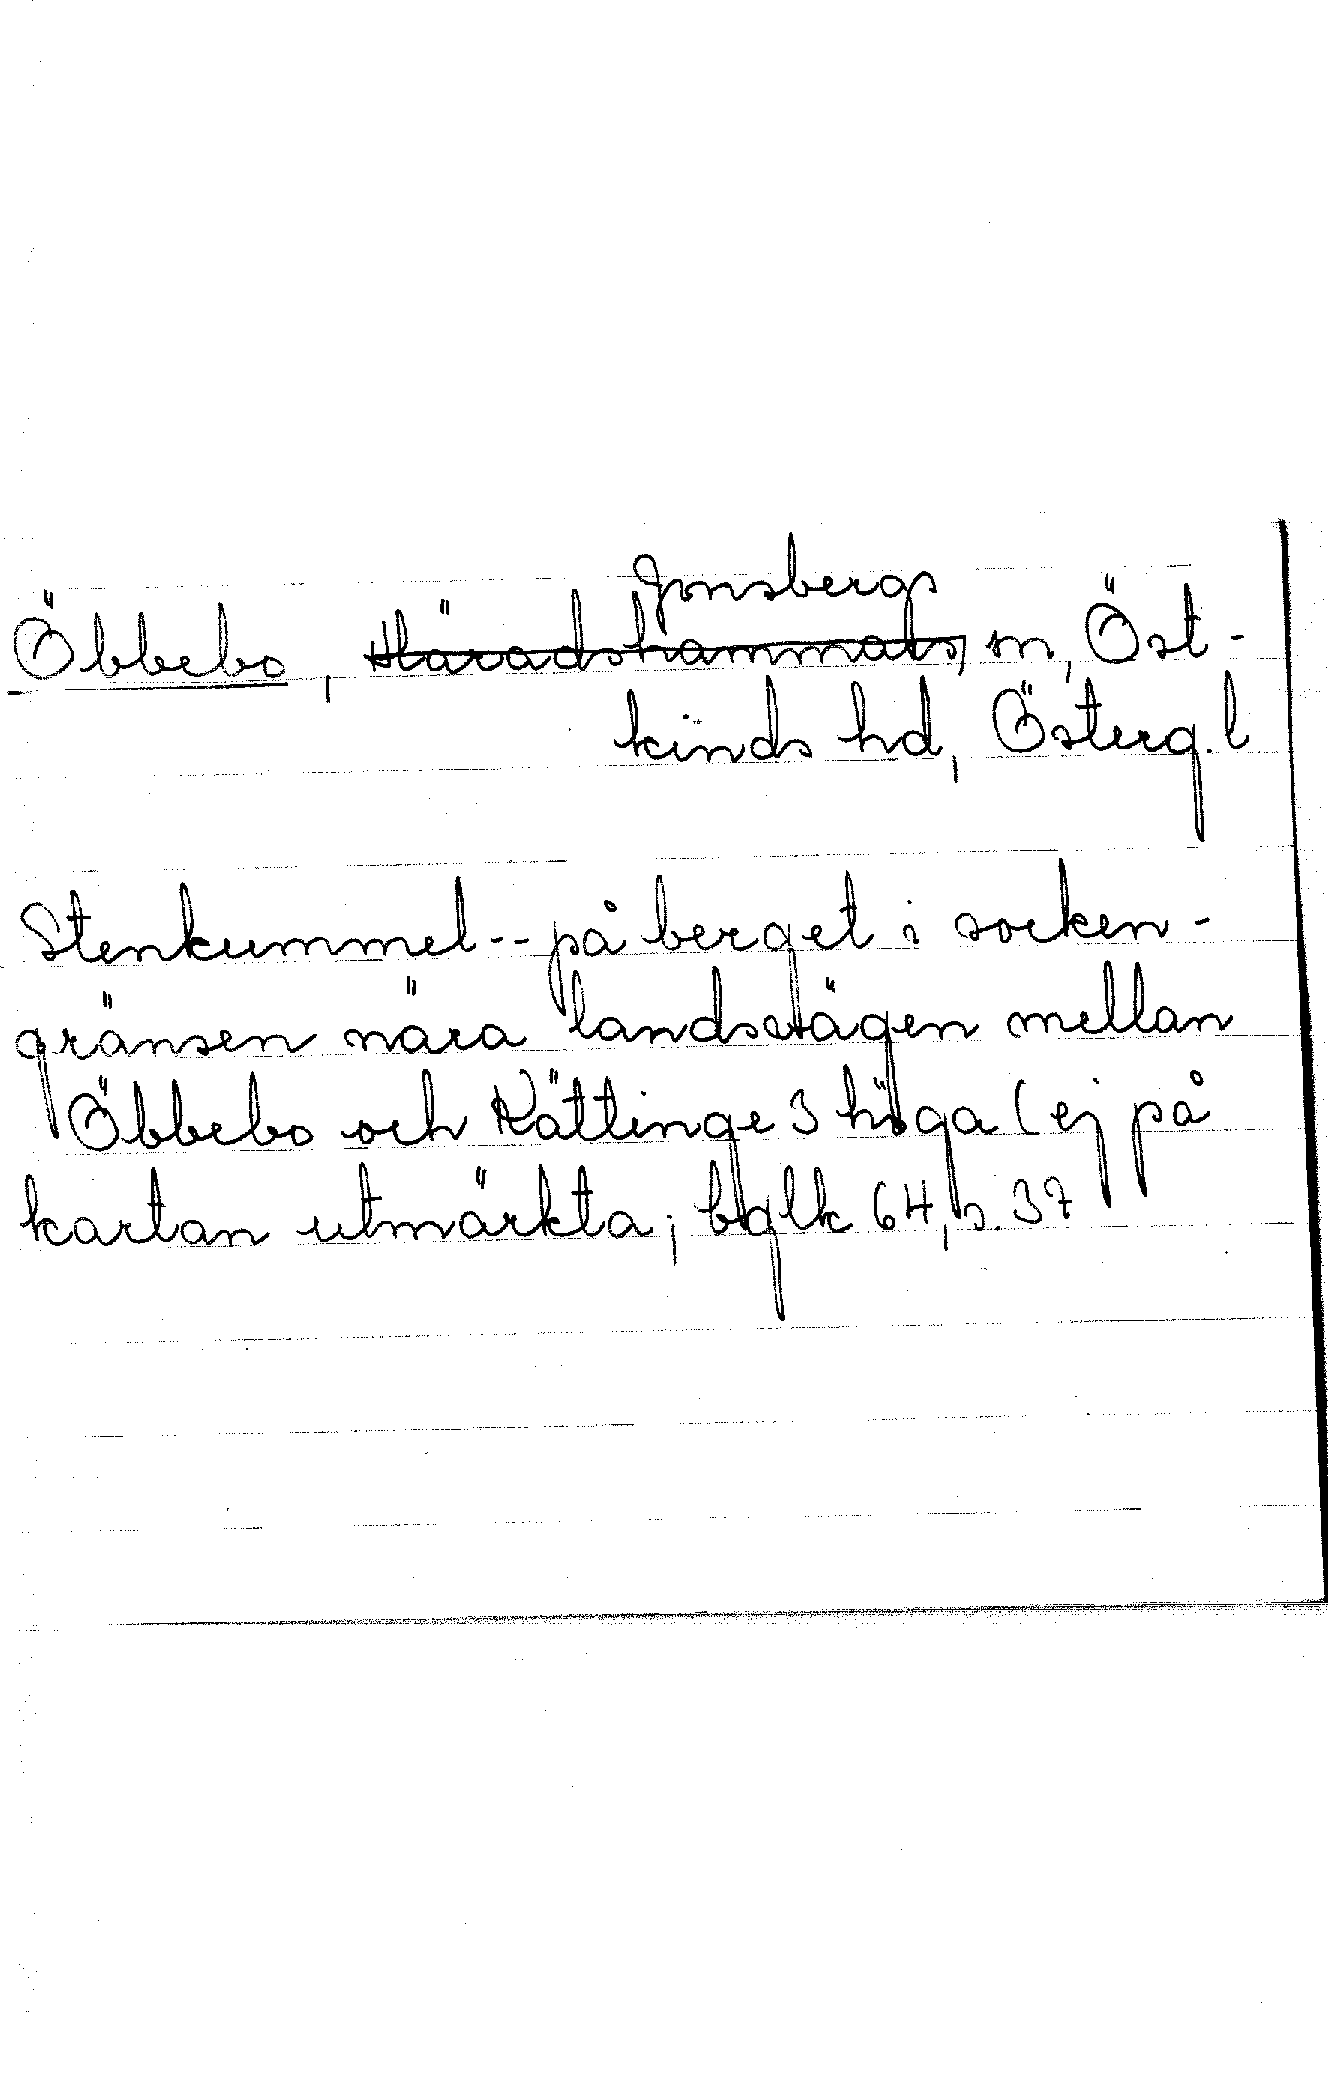 Jonsbergs
Öbbebo, Häradshammars sn, Öst-
kinds hd, Österg.l
Stenkummel -- på berget i socken-
gränsen nära landsvägen mellan
Öbbebo och Kättinge 3 höga (ej på
kartan utmärkta; bglk 64, s. 37